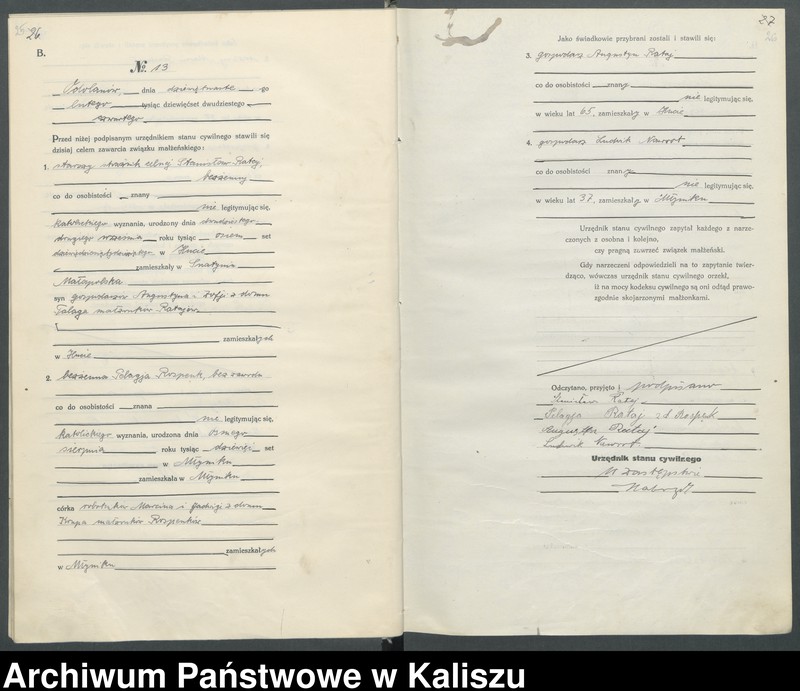 26
B.
No 13
Odolanów, dnia dziewiętnastego
lutego tysiąc dziewięćset dwudziestego
czwartego
Przed niżej podpisanym urzędnikiem stanu cywilnego stawili się
dzisiaj celem zawarcia związku małżeńskiego:
1. starszy strażnik celnej Stanisław Rataj,
bezżenny
co do osobistości znany
nie legitymując się,
katolickiego wyznania, urodzony dnia dwudziestego
drugiego września roku tysiąc osiem set
w Hucie
zamieszkały w Śniatynie
Małopolska
syn gospodarzów Augustyna i Zofji z domu
małżonków Ratajów
zamieszkałych
w Hucie
2. bezżenna Pelagja Rospenk, bez zawodu
co do osobistości znana
nie legitymując się,
katolickiego wyznania, urodzona dnia ósmego
sierpnia roku tysiąc dziewięć set
w Młyniku
zamieszkała w Młyniku
córka robotnika Marcina i Jadwigi z domu
Krupa małżonków Rospenków
zamieszkałych
w Młyniku
27
Jako świadkowie przybrani zostali i stawili się:
3. gospodarz Augustyn Rataj
co do osobistości znany
nie legitymując się,
w wieku lat 65, zamieszkały w Hucie
4. gospodarz Ludwik Nawrot
co do osobistości znany
nie legitymując się,
w wieku lat 37, zamieszkały w Młyniku
Urzędnik stanu cywilnego zapytał każdego z narze-
czonych z osobna i kolejno,
czy pragną zawrzeć związek małżeński.
Gdy narzeczeni odpowiedzieli na to zapytanie twier-
dząco, wówczas urzędnik stanu cywilnego orzekł,
iż na mocy kodeksu cywilnego są oni odtąd prawo-
zgodnie skojarzonymi małżonkami.
Odczytano, przyjęto i podpisano
Stanisław Rataj
Pelagja Rataj zd Rospęk
Augustyn Rataj
Ludwik Nawrot
Urzędnik stanu cywilnego
W zastępstwie
Archiwum Państwowe w Kaliszu